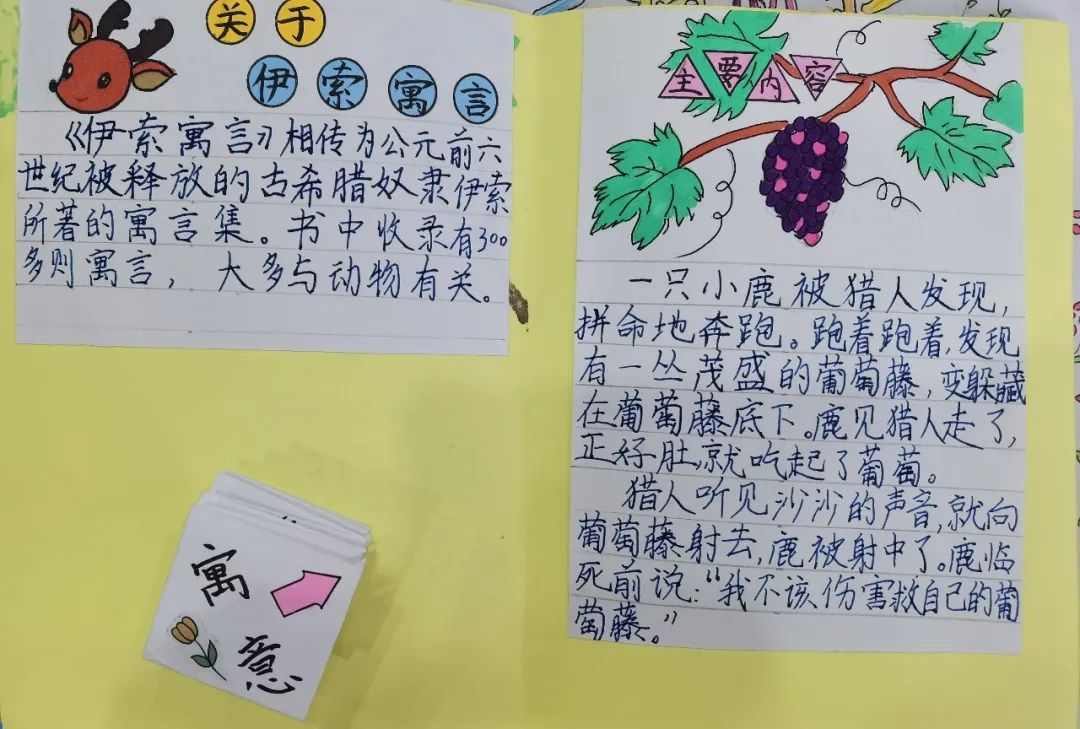 关于
伊索寓言
《伊索寓言》相传为公元前六
世纪被释放的古希腊奴隶伊索
所著的寓言集。书中收录有300
多则寓言，大多与动物有关。
寓
意
主要内容
一只小鹿被猎人发现，
拼命地奔跑。跑着跑着，发现
有一丛茂盛的葡萄藤，变躲藏
在葡萄藤底下。鹿见猎人走了，
正好肚，就吃起了葡萄。
猎人听见沙沙的声音，就向
葡萄藤射去，鹿被射中了。鹿临
死前说：“我不该伤害救自己的葡
萄藤。”